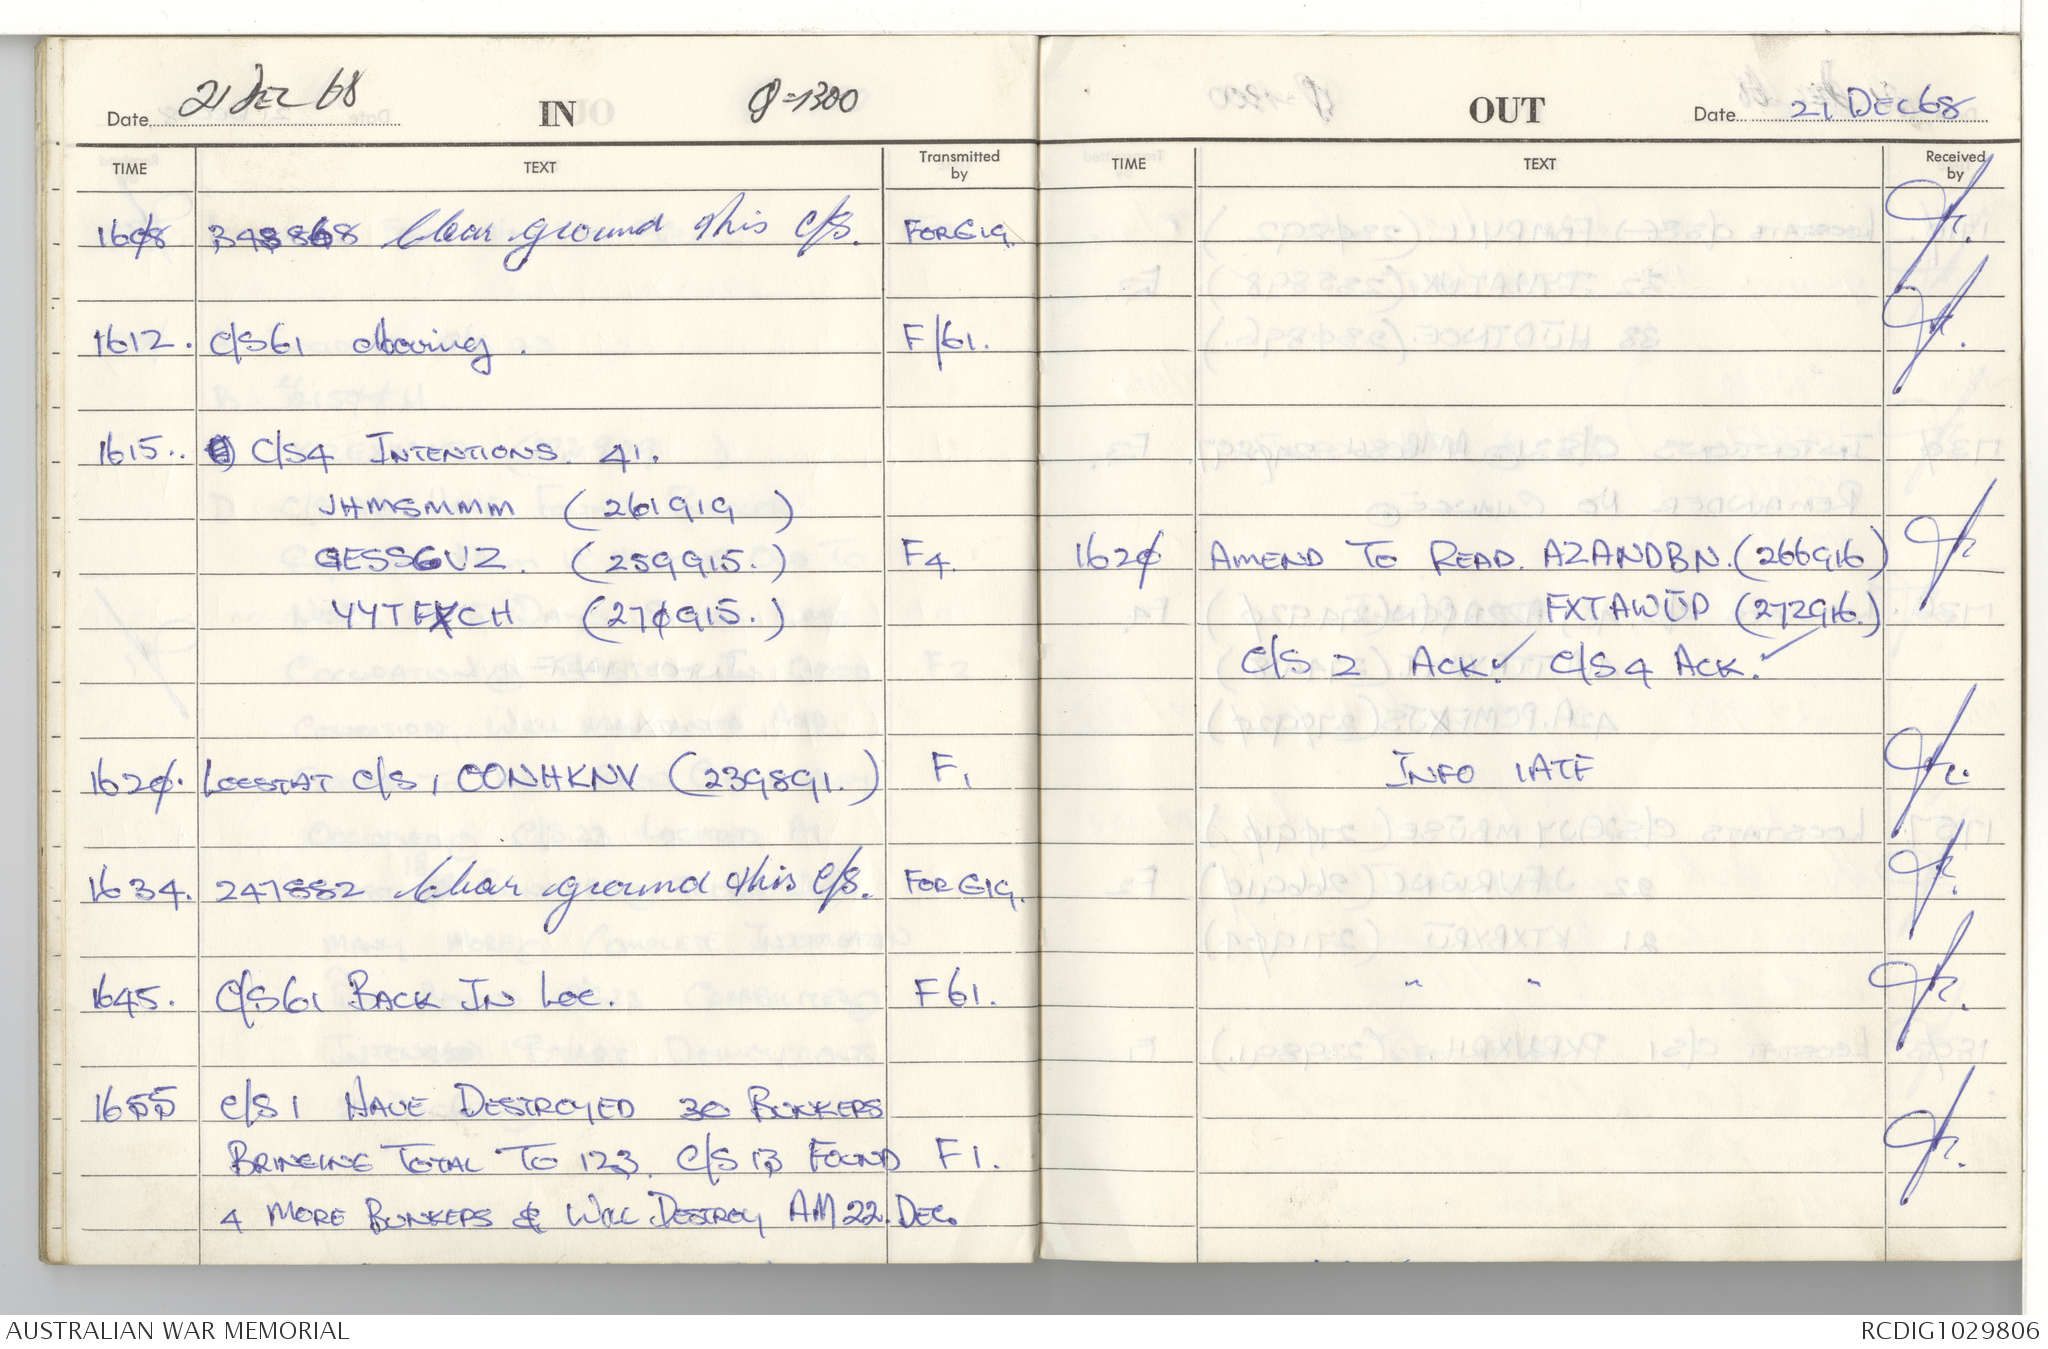 Date 21 DEC 68 IN Q=1300
TIME TEXT Transmitted by
1608 348868 Clear ground this c/s. FOR G19.
1612. C/S61 moving. F/61.
1615.. C/S4 INTENTIONS. 41.
JHMSMMM (261919)
GESSGUZ. (259915.) F4.
YYTFXCH (270915.)
1620. LOCSTAT C/S 1 OONHKNV (239891.) F1
1634. 247882 Clear ground this c/s. FOR G19.
1645. C/S61 BACK IN LOC. F61.
1655 C/S 1 HAVE DESTROYED 30 BUNKERS
BRINGING TOTAL TO 123. C/S 13 FOUND F1.
4 MORE BUNKERS & WILL DESTROY AM 22 DEC.
OUT Date 21 DEC 68
TIME TEXT Received by
1620 AMEND TO READ. AZANDBN. (266916)
FXTAWUP (272916.)
C/S 2 ACK. ✓ C/S 4 ACK. ✓
INFO 1ATF
" "
AUSTRALIAN WAR MEMORIAL RCDIG1029806